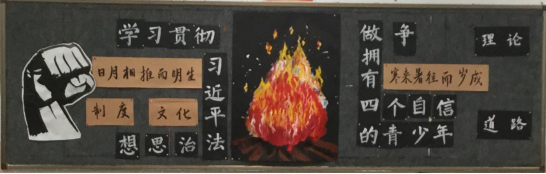 学习贯彻
习近平法
想思治
日月相推而明生
制度
文化
争
做拥有
四个自信
的青少年
理论
寒来暑往而岁成
道路